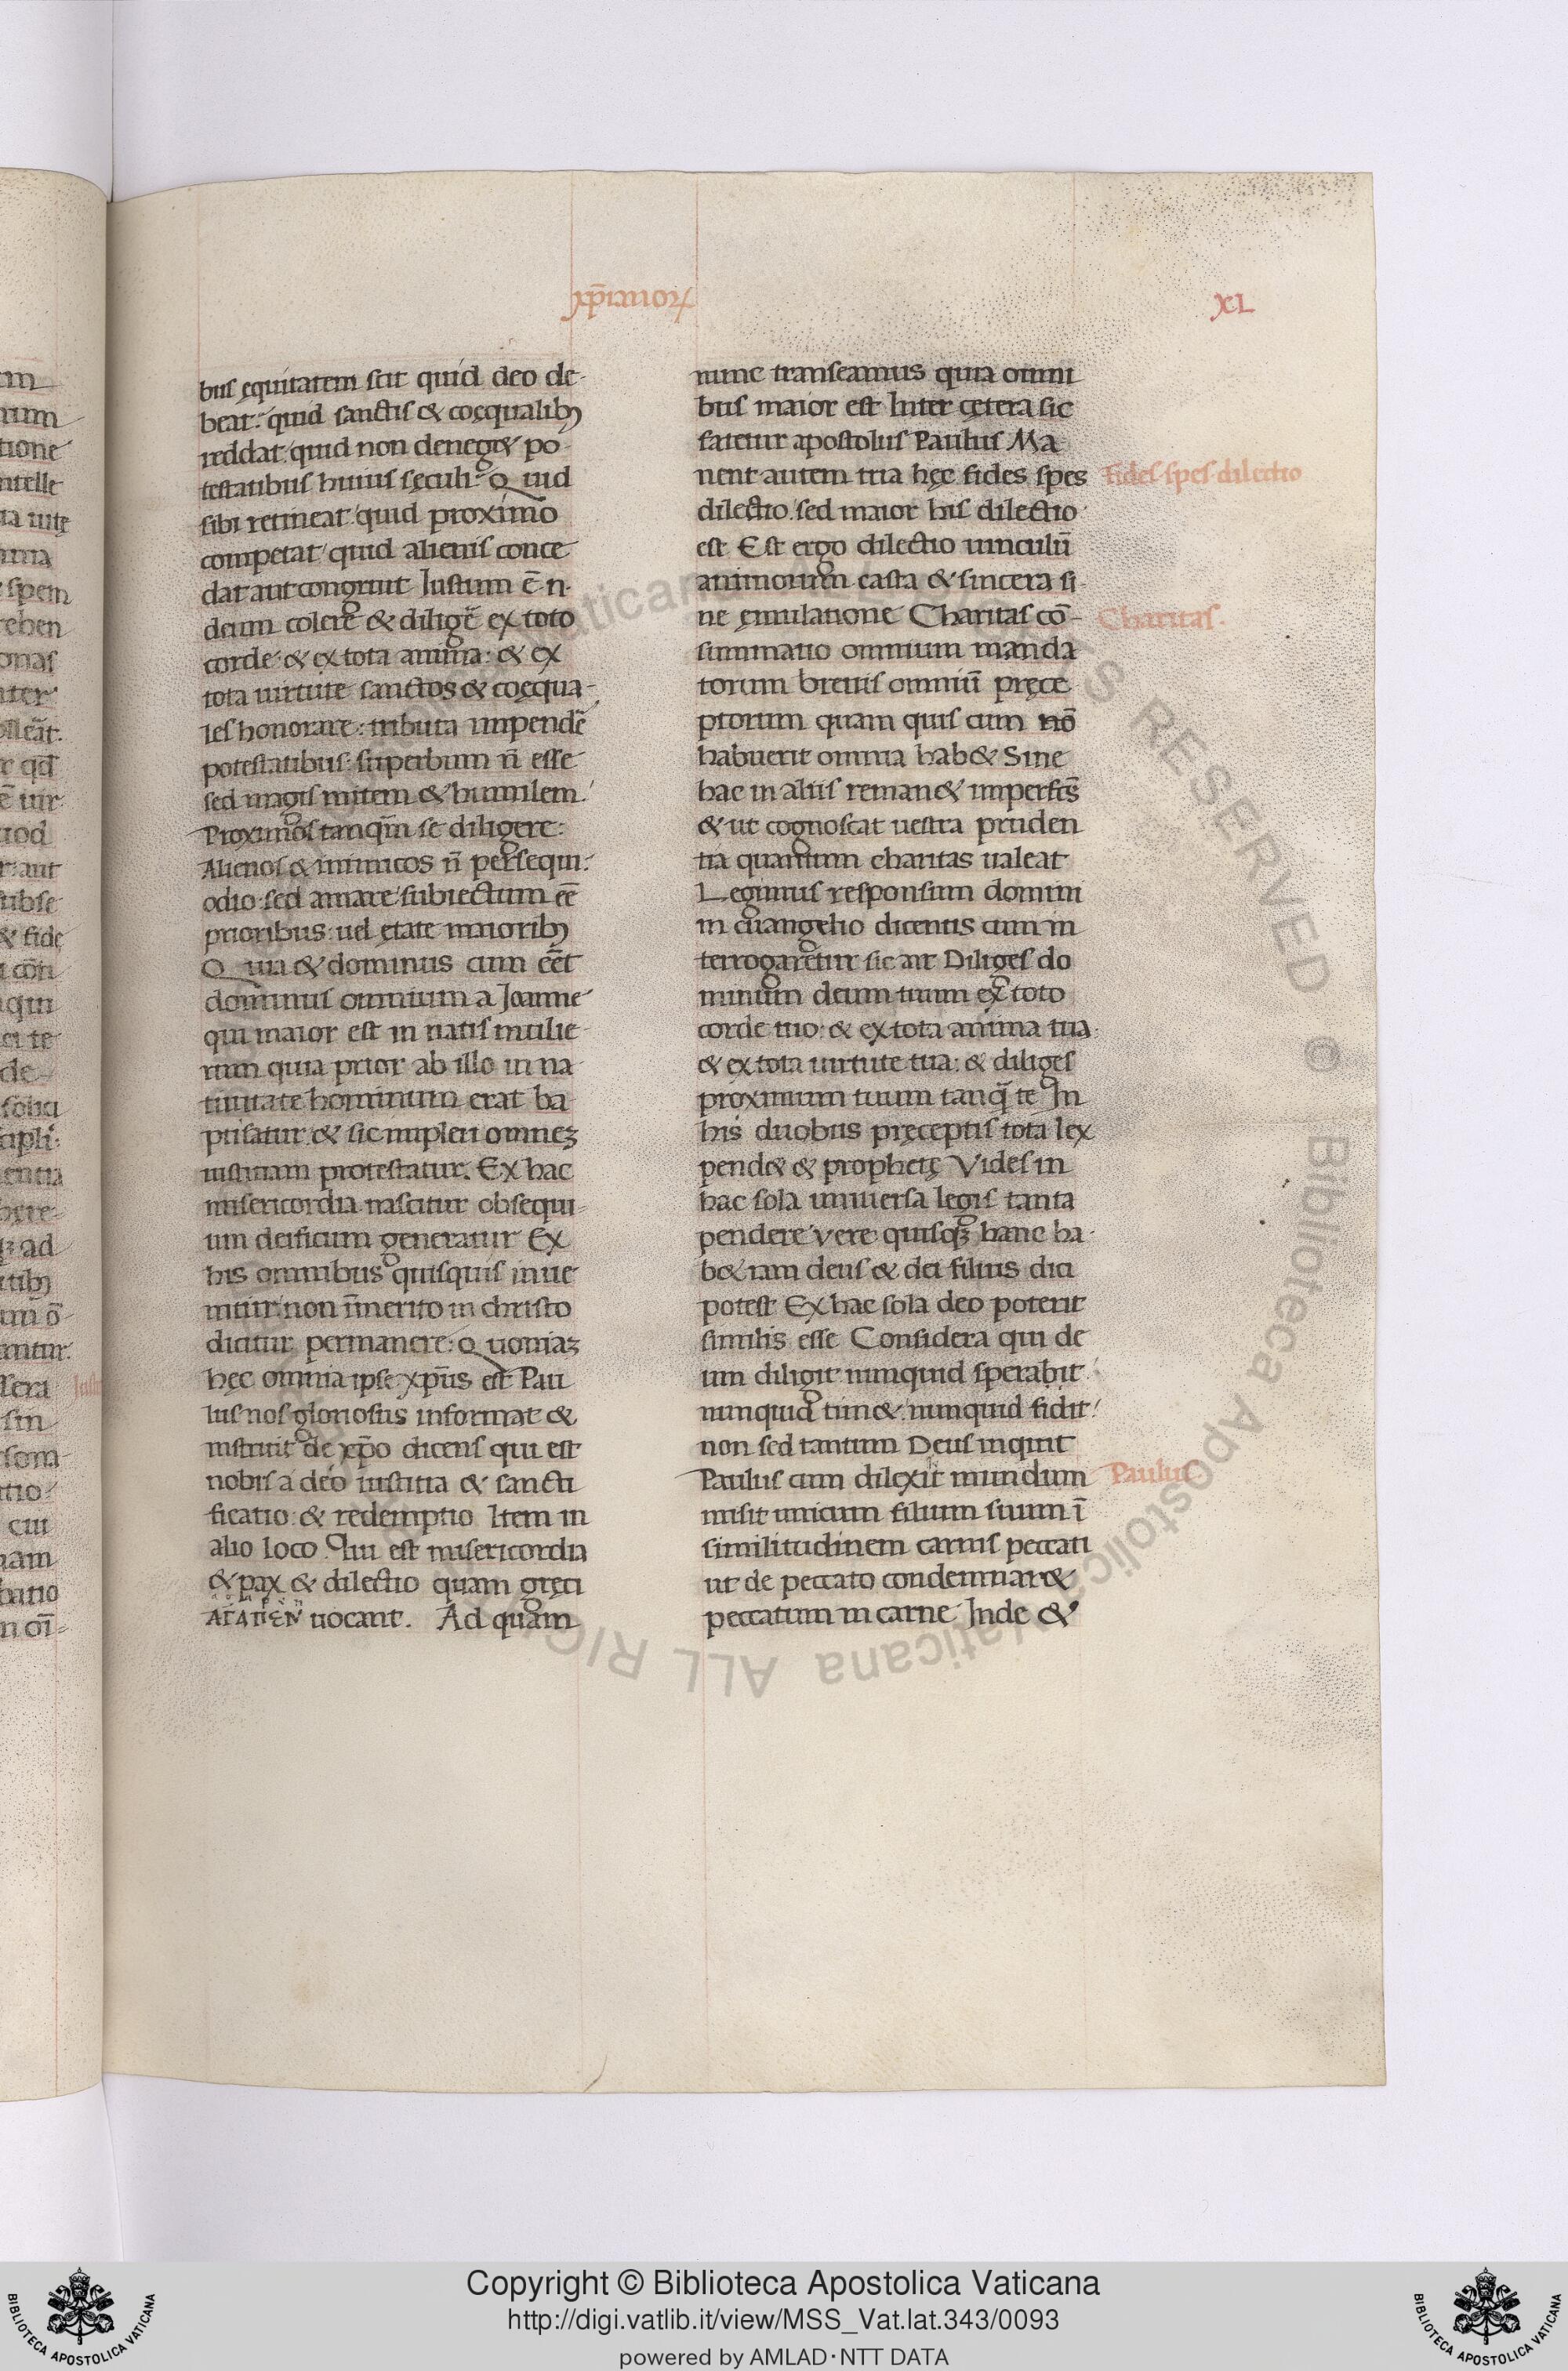 XL
bus ęquitatem scit quid deo de-
beat: quid sanctis & coęqualibꝫ
reddat: quid non deneg& po-
testatibus huius sęculi: Quid
sibi retineat: quid proximo
competat quid alienis conce
dat aut congruit Iustum ē .n.
deum colere & diligē ex toto
corde: & ex tota anima: & ex
tota uirtute sanctos & coęqua-
les honorare: tributa impendē
potestatibus: superbum n̄ esse
sed magis mitem & humilem:
Proximos tanqm̄ se diligere:
Alienos & inimicos n̄ persequi:
odio: sed amare subiectum eē
prioribus: uel ętate maioribꝫ
Quia & dominus cum eēt
dominus omnium a Joanne
qui maior est in natis mulie-
rum quia prior ab illo in na-
tiuitate hominum erat ba-
ptisatur. & sic impleri omneꝫ
iustitiam protestatur. Ex hac
misericordia nascitur obsequi-
um deificum generatur Ex
his omnibus quisquis inue
nitur: non īmerito in christo
dicitur permanere: Quoniaꝫ
hęc omnia ipse xp̄us est Pau
lus nos gloriosus informat &
instruit de xp̄o dicens qui est
nobis a deo iustitia & sancti
ficatio: & redemptio Item in
alio loco. Qui est misericordia
& pax & dilectio quam gręci
ΑΓΑΠΕΝ uocant. Ad quam
nunc transeamus quia omni
bus maior est Inter cętera sic
fatetur apostolus Paulus Ma
nent autem tria hęc fides spes
fides. spes. dilectio
dilectio. sed maior his dilectio
est Est ergo dilectio uinculū
animorum casta & sincera si-
ne ęmulatione Charitas cō-
Charitas.
summatio omnium manda
torum breuis omniū pręce
ptorum quam quis cum nō
habuerit omnia hab& Sine
hac in aliis reman& imperfcs̄
& ut cognoscat uestra pruden
tia quantum charitas ualeat
Legimus responsum domini
in euangelio dicentis cum in
terrogaretur sic air Diliges do
minum deum tuum ex toto
corde tuo: & ex tota anima tua
& ex tota uirtute tua: & diliges
proximum tuum tanq̄ te In
his duobus pręceptis tota lex
pend& & prophetę Vides in
hac sola uniuersa legis tanta
pendere vere quisqꝫ hanc ha-
b& iam deus & dei filius dici
potest Ex hac sola deo poterit
similis esse Considera qui de
um diligit nunquid sperabit
nunquid tim& nunquid fidit:
non sed tantum Deus inquit
Paulus cum dilexit mundum
Paulus
misit unicum filium suum ī
similitudinem carnis peccati
ut de peccato condemnar&
peccatum in carne Inde &
Copyright © Biblioteca Apostolica Vaticana
http://digi.vatlib.it/view/MSS_Vat.lat.343/0093
powered by AMLAD·NTT DATA
BIBLIOTECA APOSTOLICA VATICANA
BIBLIOTECA APOSTOLICA VATICANA